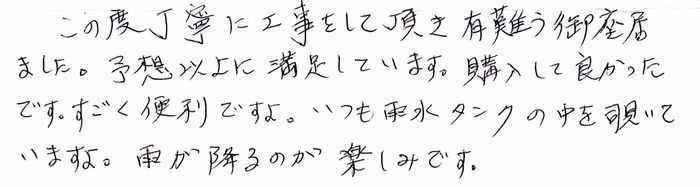 この度丁寧に工事をして頂き有難う御座居
ました。予想以上に満足しています。購入して良かった
です。すごく便利ですよ。いつも雨水タンクの中を覗いて
いますよ。雨が降るのが楽しみです。